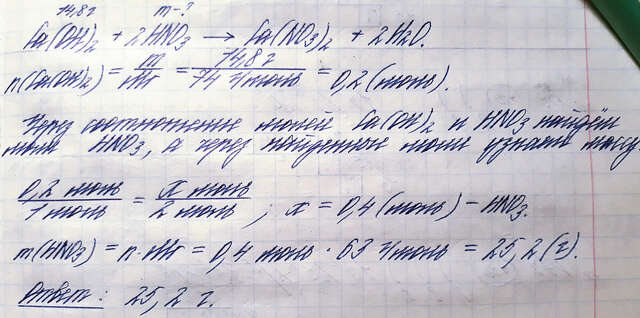 14,8г m-?
Ca(OH)₂ + 2HNO₃ → Ca(NO₃)₂ + 2H₂O.
n(Ca(OH)₂) = m/Mr = 14,8г/74 г/моль = 0,2 (моль).
Через соотношение молей Ca(OH)₂ и HNO₃ найдём
моли HNO₃, а через найденные моли узнаем массу
0,2 моль/1 моль = x моль/2 моль ; x = 0,4 (моль) - HNO₃.
m(HNO₃) = n · Mr = 0,4 моль · 63 г/моль = 25,2 (г).
Ответ: 25,2 г.